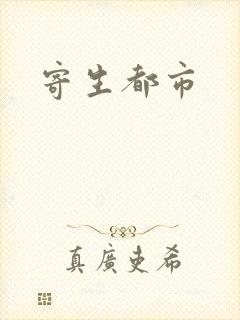 寄生都市
真廣史希